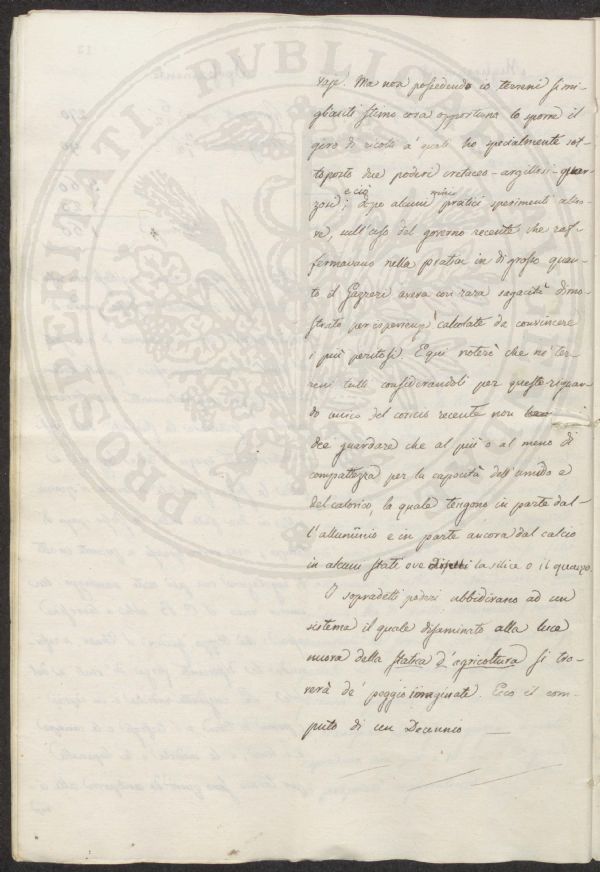 vasi. Ma non possedendo io terreni simi-
glianti stimo cosa opportuna lo sporre il
giro di ricolti a' quali ho specialmente sot-
toposto due poderi cretaceo-argillosi-quar-
zosi; e ciò dopo alcuni miei pratici sperimenti altro-
ve, sull'uso del governo recente che raf-
fermavano nella pratica in di grosso quan-
to il Gazzeri aveva con rara sagacità dimo-
strato per esperienze calcolate da convincere
i più peritosi. E qui noterò che ne' ter-
reni tutti considerandoli per questo riguar-
do unico del concio recente non
dee guardare che al più o al meno di
compattezza per la capacità dell'umido e
del calorico, la quale tengono in parte dal-
l'alluminio e in parte ancora dal calcio
in alcuni stati ove la silice o il quarzo.
I sopradetti poderi ubbidivano ad un
sistema il quale disaminato alla luce
nuova della statica d'agricoltura si tro-
verà de' peggio imaginati. Ecco il com-
puto di un Decennio
PROSPERITATI PUBLICAE